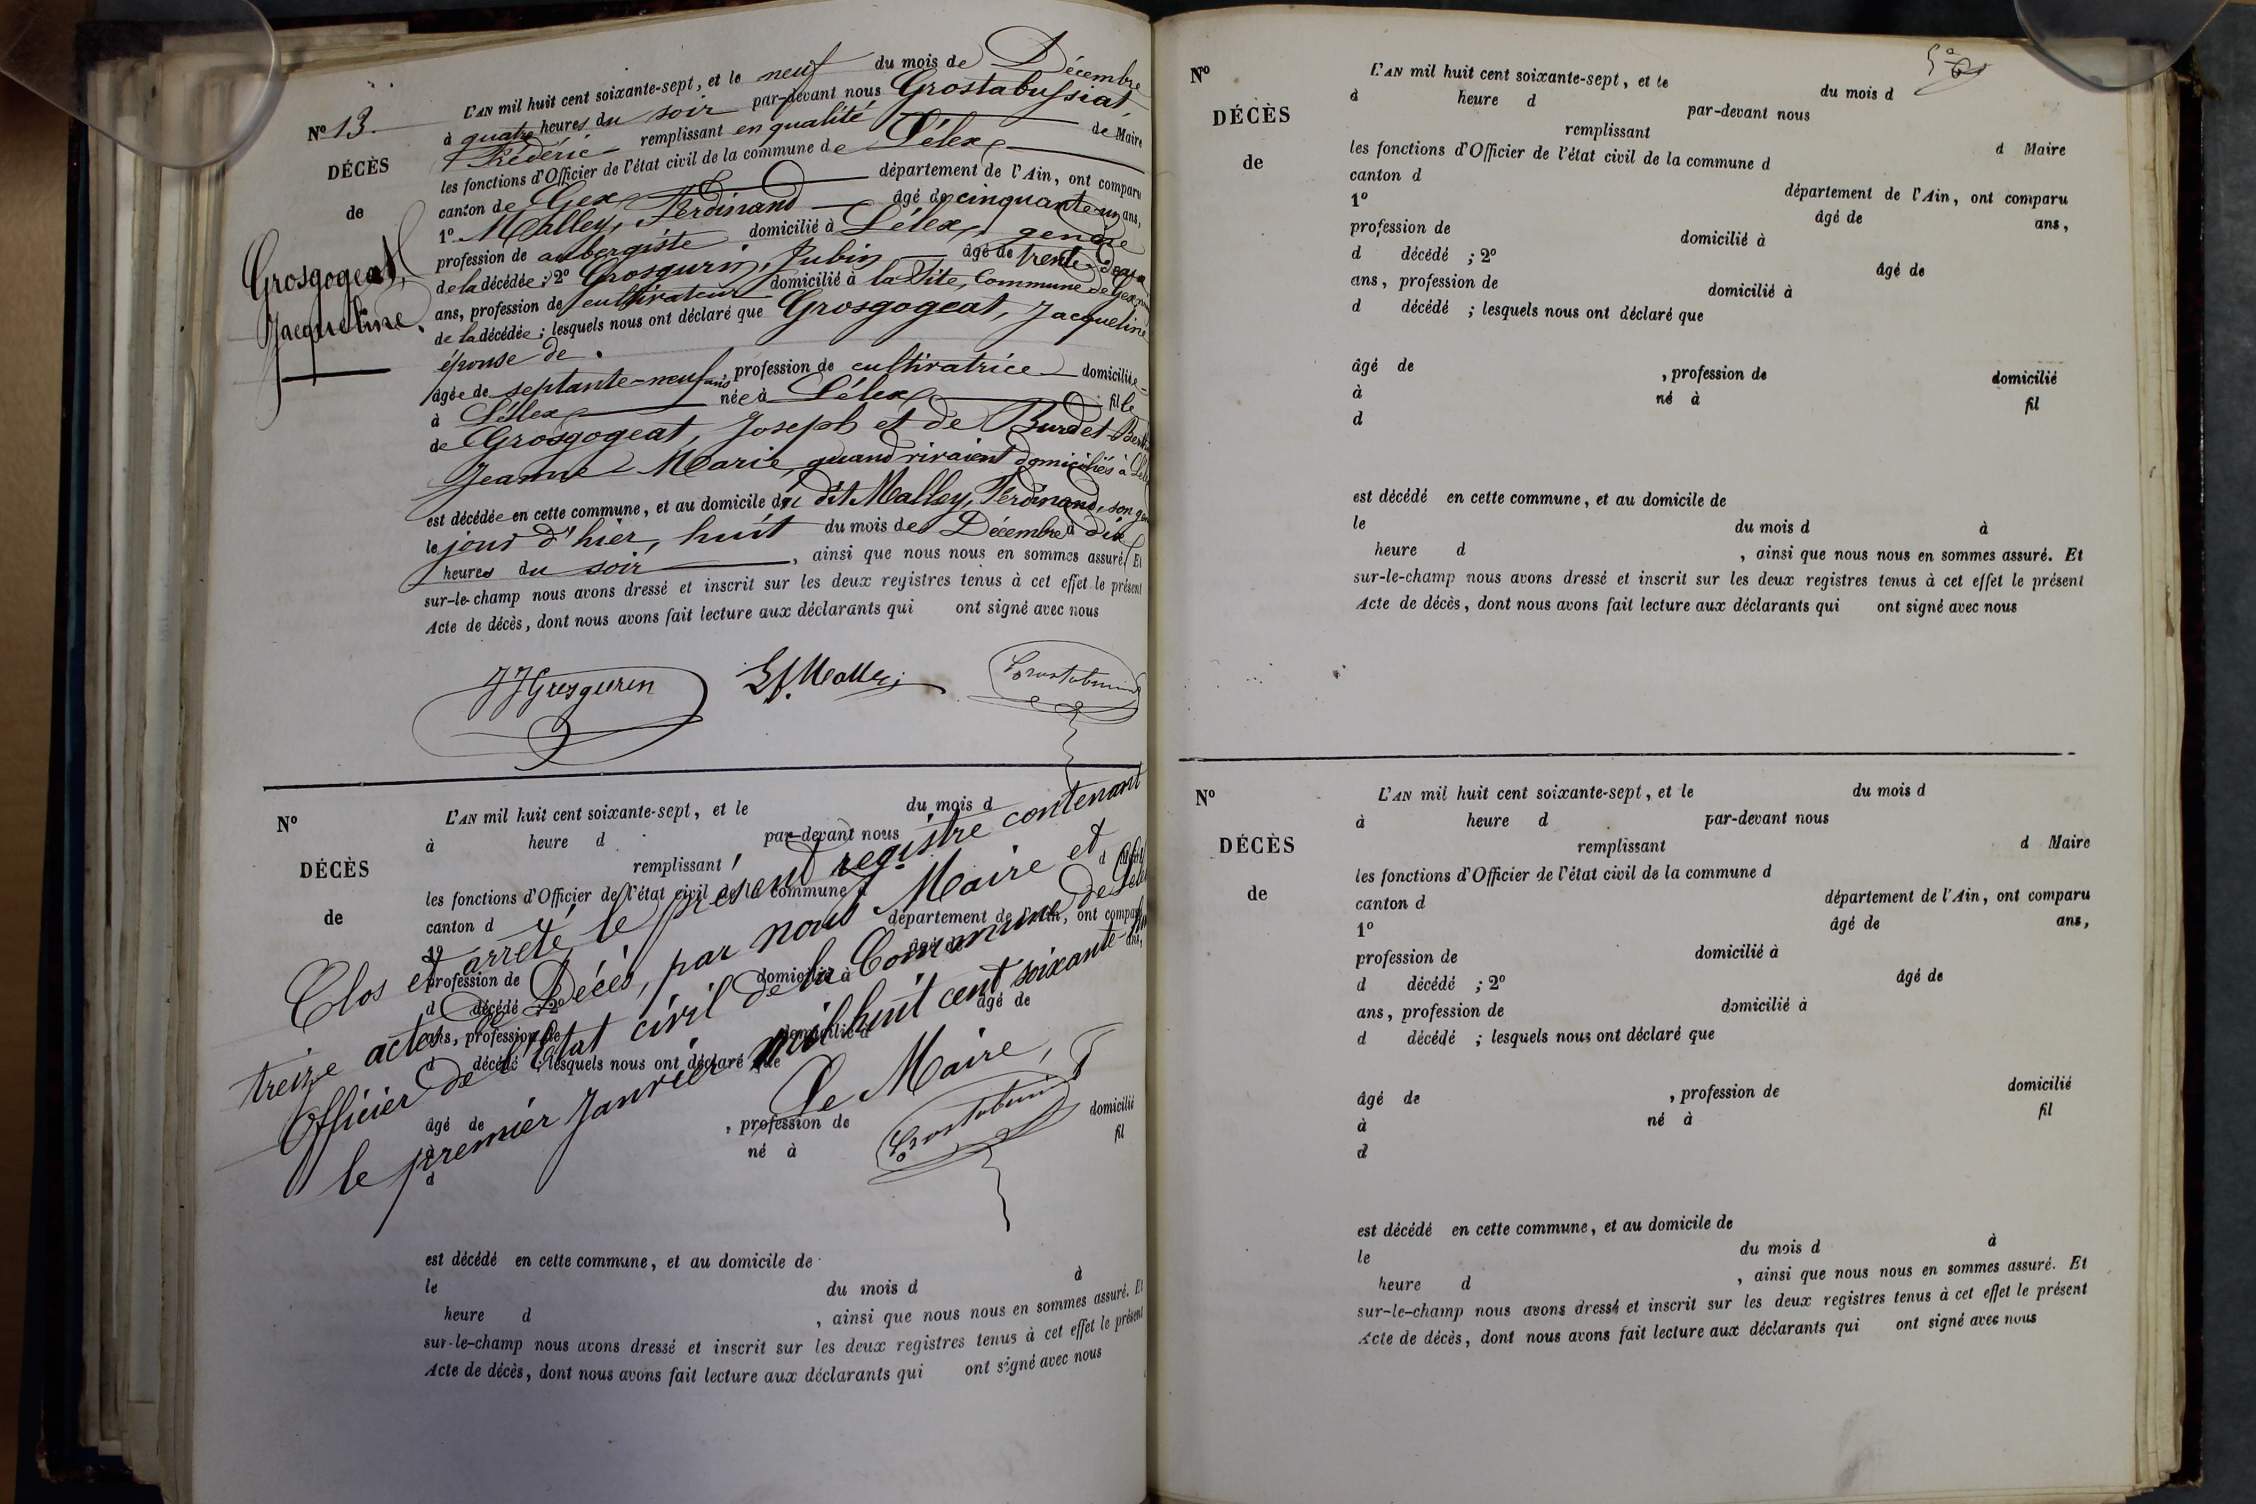 L'AN mil huit cent soixante-sept, et le neuf du mois de Décembre
No 13. à quatre heures du soir par-devant nous Grostabussiat
Frédéric remplissant en qualité de Maire
DÉCÈS
les fonctions d'Officier de l'état civil de la commune de Lélex
canton de Gex département de l'Ain, ont comparu
de
1o Malley, Ferdinand âgé de cinquante-un ans,
profession de aubergiste domicilié à Lélex, gendre
Grosgogeat,
Jacqueline.
de la décédée; 2o Grosgurin, Jubin âgé de trente-deux
ans, profession de cultivateur domicilié à la Site, Commune de Gex,
de la décédée; lesquels nous ont déclaré que Grosgogeat, Jacqueline
épouse de .
âgée de septante-neuf ans, profession de cultivatrice domiciliée
à Lélex née à Lélex fille
de Grosgogeat, Joseph et de Burdet
Jeanne-Marie, quand vivaient domiciliés à
est décédée en cette commune, et au domicile du dit Malley, Ferdinand, son
le jour d'hier, huit du mois de Décembre à dix
heures du soir, ainsi que nous nous en sommes assuré. Et
sur-le-champ nous avons dressé et inscrit sur les deux registres tenus à cet effet le présent
Acte de décès, dont nous avons fait lecture aux déclarants qui ont signé avec nous
JJGrosgurin
No
L'AN mil huit cent soixante-sept, et le du mois d
à heure d par-devant nous
remplissant d
DÉCÈS
les fonctions d'Officier de l'état civil de la commune d
canton d département de l'Ain, ont comparu
de
1o âgé de ans,
profession de domicilié à
d décédé ; 2o âgé de
ans, profession de domicilié à
d décédé ; lesquels nous ont déclaré que
âgé de , profession de domicilié
à né à fil
d
Clos et arrêté le présent registre contenant
treize actes de Décès, par nous Maire et
Officier de l'état civil de la Commune de
le premier Janvier mil huit cent soixante
Le Maire,
est décédé en cette commune, et au domicile de
le du mois d à
heure d , ainsi que nous nous en sommes assuré. Et
sur-le-champ nous avons dressé et inscrit sur les deux registres tenus à cet effet le présent
Acte de décès, dont nous avons fait lecture aux déclarants qui ont signé avec nous
No
L'AN mil huit cent soixante-sept, et le du mois d
à heure d par-devant nous
DÉCÈS
remplissant d Maire
les fonctions d'Officier de l'état civil de la commune d
de
canton d département de l'Ain, ont comparu
1o âgé de ans,
profession de domicilié à
d décédé ; 2o âgé de
ans, profession de domicilié à
d décédé ; lesquels nous ont déclaré que
âgé de , profession de domicilié
à né à fil
d
est décédé en cette commune, et au domicile de
le du mois d à
heure d , ainsi que nous nous en sommes assuré. Et
sur-le-champ nous avons dressé et inscrit sur les deux registres tenus à cet effet le présent
Acte de décès, dont nous avons fait lecture aux déclarants qui ont signé avec nous
No
L'AN mil huit cent soixante-sept, et le du mois d
à heure d par-devant nous
DÉCÈS
remplissant d Maire
les fonctions d'Officier de l'état civil de la commune d
de
canton d département de l'Ain, ont comparu
1o âgé de ans,
profession de domicilié à
d décédé ; 2o âgé de
ans, profession de domicilié à
d décédé ; lesquels nous ont déclaré que
âgé de , profession de domicilié
à né à fil
d
est décédé en cette commune, et au domicile de
le du mois d à
heure d , ainsi que nous nous en sommes assuré. Et
sur-le-champ nous avons dressé et inscrit sur les deux registres tenus à cet effet le présent
Acte de décès, dont nous avons fait lecture aux déclarants qui ont signé avec nous